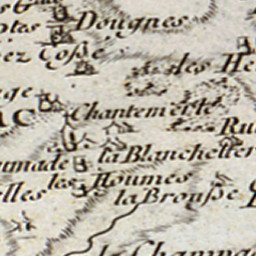 Dougnes
ez Cossé
des He
Chantemerle
AC
Ru
la Blancheller
umade
elles
les Houmes
la Brousse
la Champag